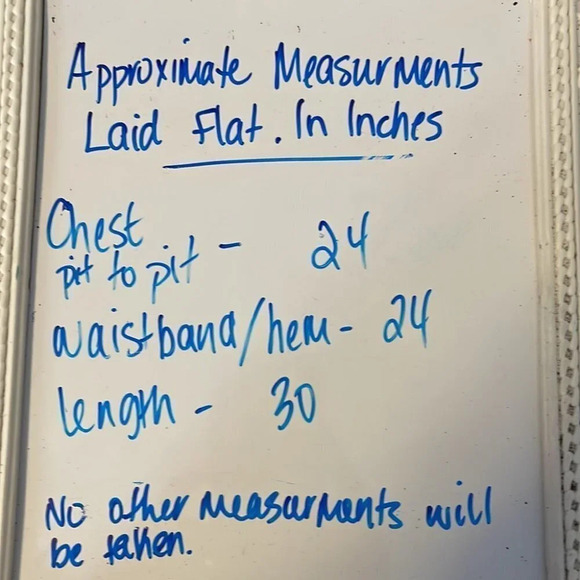 Approximate Measurments
Laid Flat. In Inches
Chest
pit to pit - 24
waistband/hem - 24
length - 30
No other measurments will
be taken.